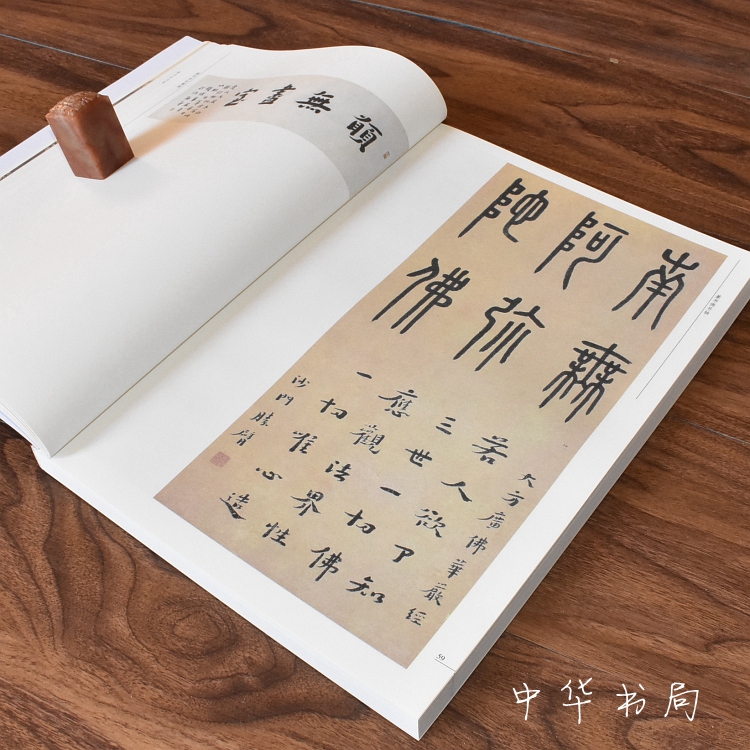 願無盡
南無
阿弥
陀佛
大方廣佛華嚴經
若人欲了知
三世一切佛
應觀法界性
一切唯心造
沙門勝臂
59
中华书局